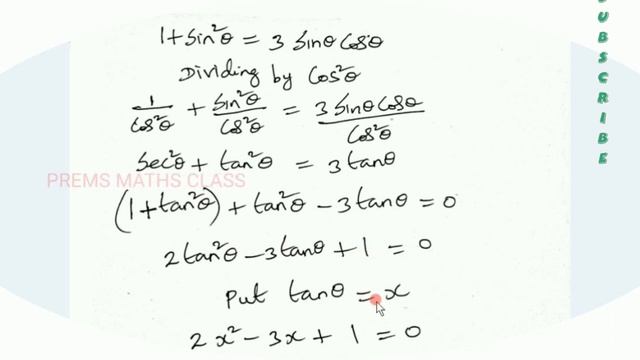 1 + sin²θ = 3 sinθ cosθ
Dividing by cos²θ
1/cos²θ + sin²θ/cos²θ = 3 sinθ cosθ/cos²θ
sec²θ + tan²θ = 3 tanθ
PREMS MATHS CLASS
(1 + tan²θ) + tan²θ − 3 tanθ = 0
2 tan²θ − 3 tanθ + 1 = 0
Put tanθ = x
2x² − 3x + 1 = 0
UBSCRIBE